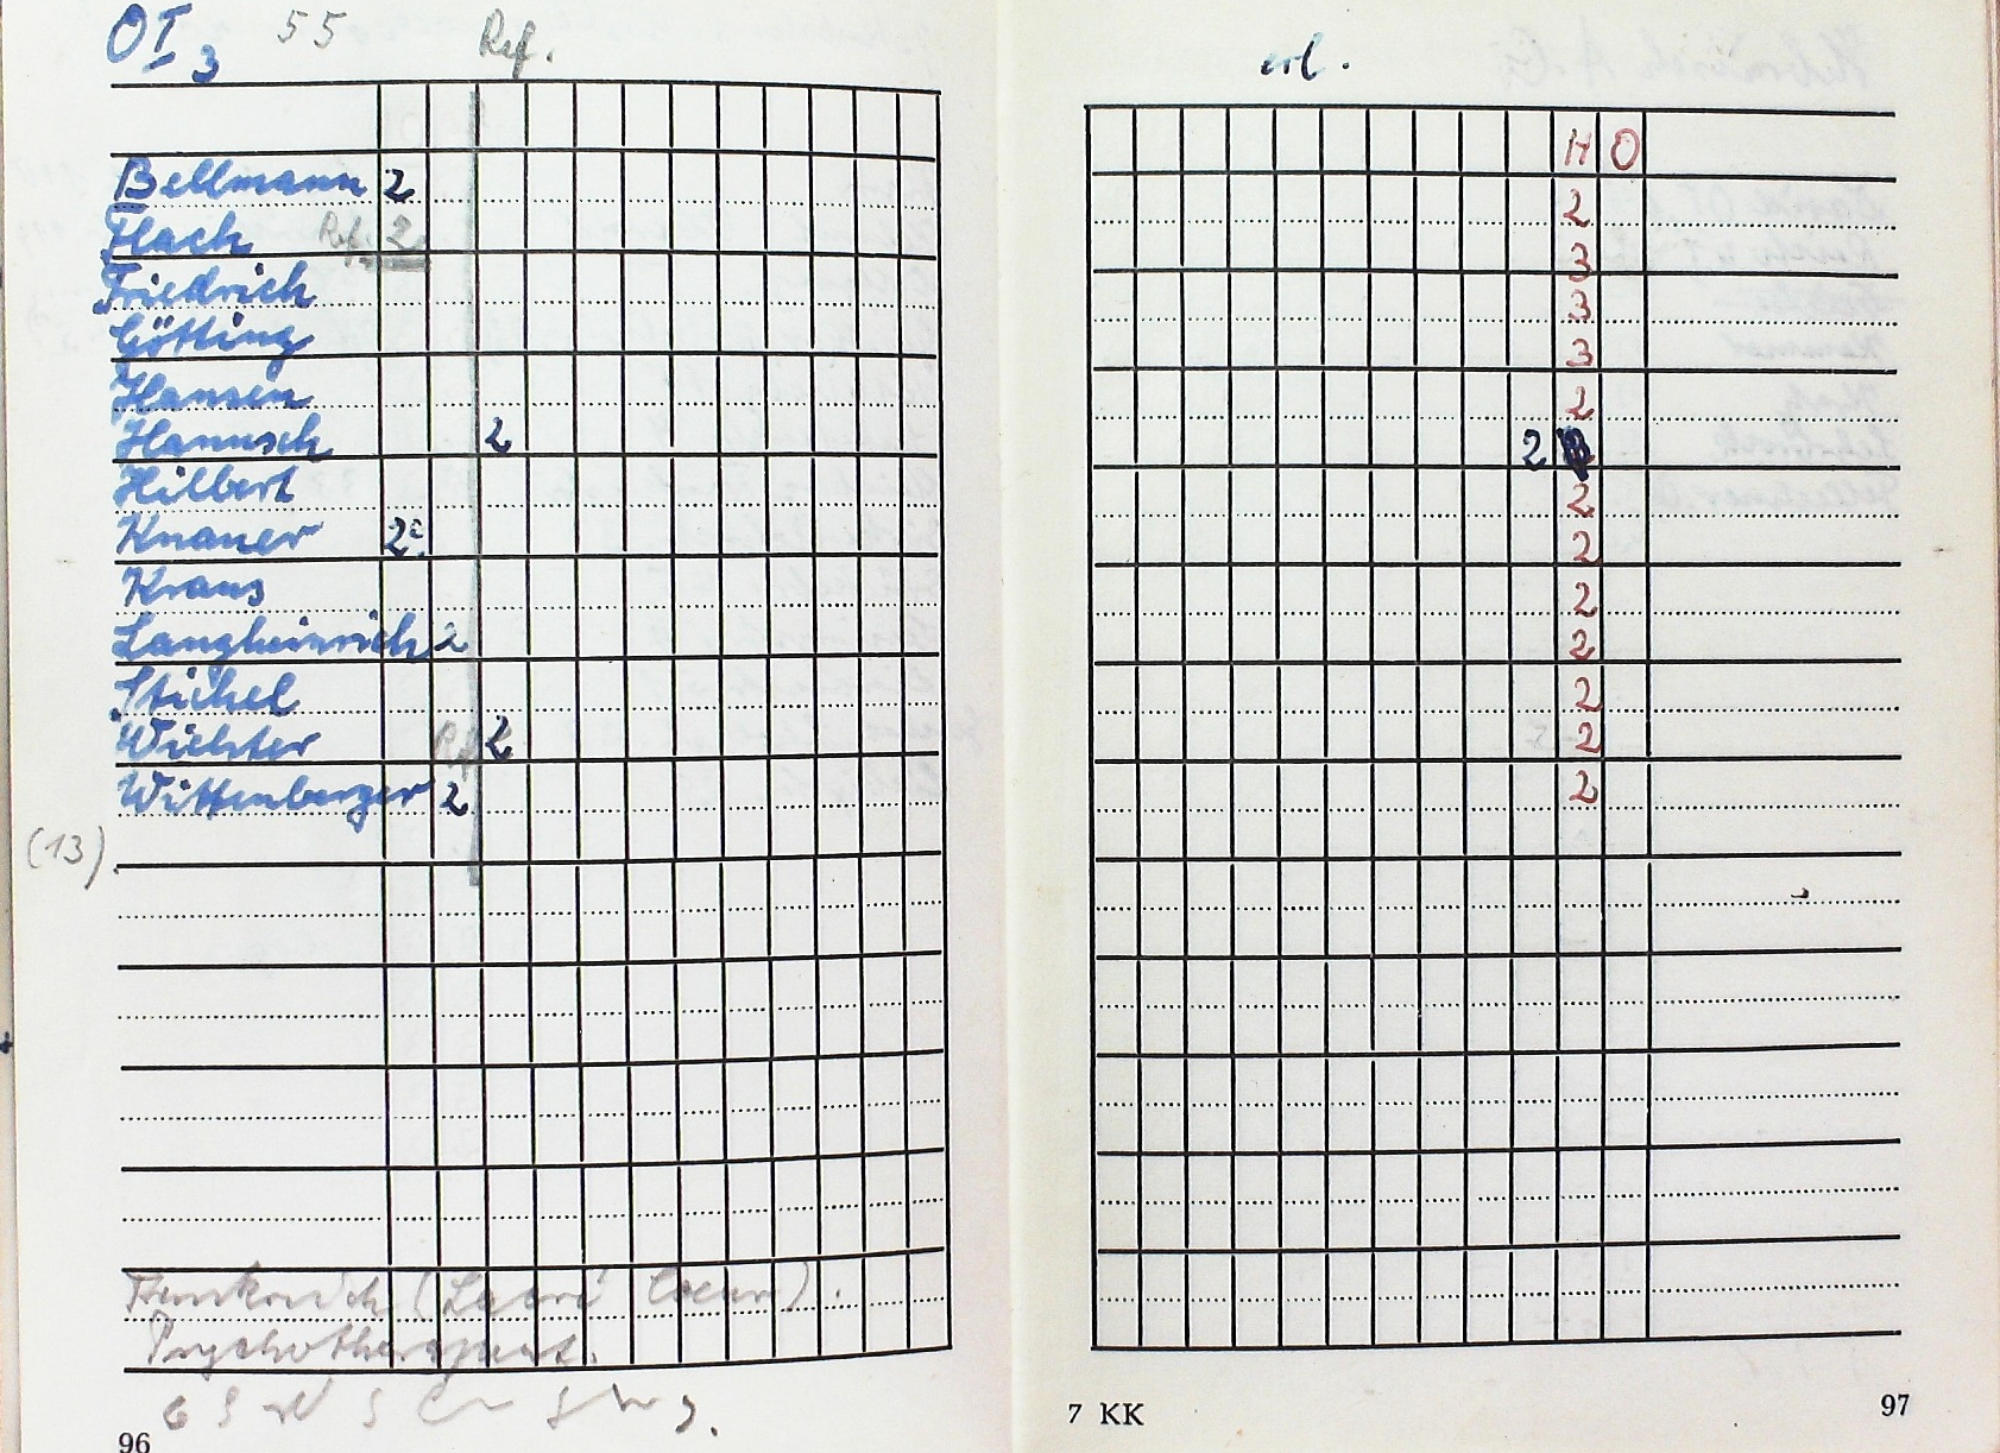 OI3 55 Ref.
Bellmann 2
Flach Ref. 2
Friedrich
Götting
Hansen
Hanusch 2
Hilbert
Knauer 2
Kraus
Langheinrich 2
Stichel
Wichter Ref. 2
Wittenberger 2
(13)
Psychotherapeut.
96
erl.
H O
2
3
3
3
2
2
2
2
2
2
2
2
2
7 KK 97